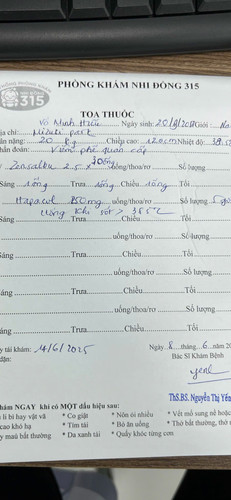 PHÒNG KHÁM NHI ĐỒNG 315
315
TOA THUỐC
Võ Minh Hiếu Ngày sinh: 20/9/2017 Giới: Na
ịa chỉ: Mizuki park
ân nặng: 20 Kg Chiều cao: 120cm Nhiệt độ: 38.5
hẩn đoán: Viêm phế quản cấp
Zensalbu 2.5 x 30 ống uống/thoa/rơ Số lượng
Sáng 1 ống Trưa 1 ống Chiều 1 ống Tối
Hapacol 250mg uống/thoa/rơ Số lượng 5 gói
Sáng Uống khi sốt > 38.5°C Chiều Tối
uống/thoa/rơ Số lượng
Sáng Trưa Chiều Tối
uống/thoa/rơ Số lượng
áng Trưa Chiều Tối
uống/thoa/rơ Số lượng
áng Trưa Chiều Tối
y tái khám: 14/6/2025 Ngày 8 tháng 6 năm 20
dặn: Bác Sĩ Khám Bệnh
ThS.BS. Nguyễn Thị Yến
hám NGAY khi có MỘT dấu hiệu sau:
li bì hay vật vã * Co giật * Nôn ói nhiều * Vết mổ sưng nề hoặc
cao khó hạ * Tím tái * Bỏ ăn uống * Thở bất thường, thở
y máu bất thường * Da xanh tái * Quấy khóc từng cơn